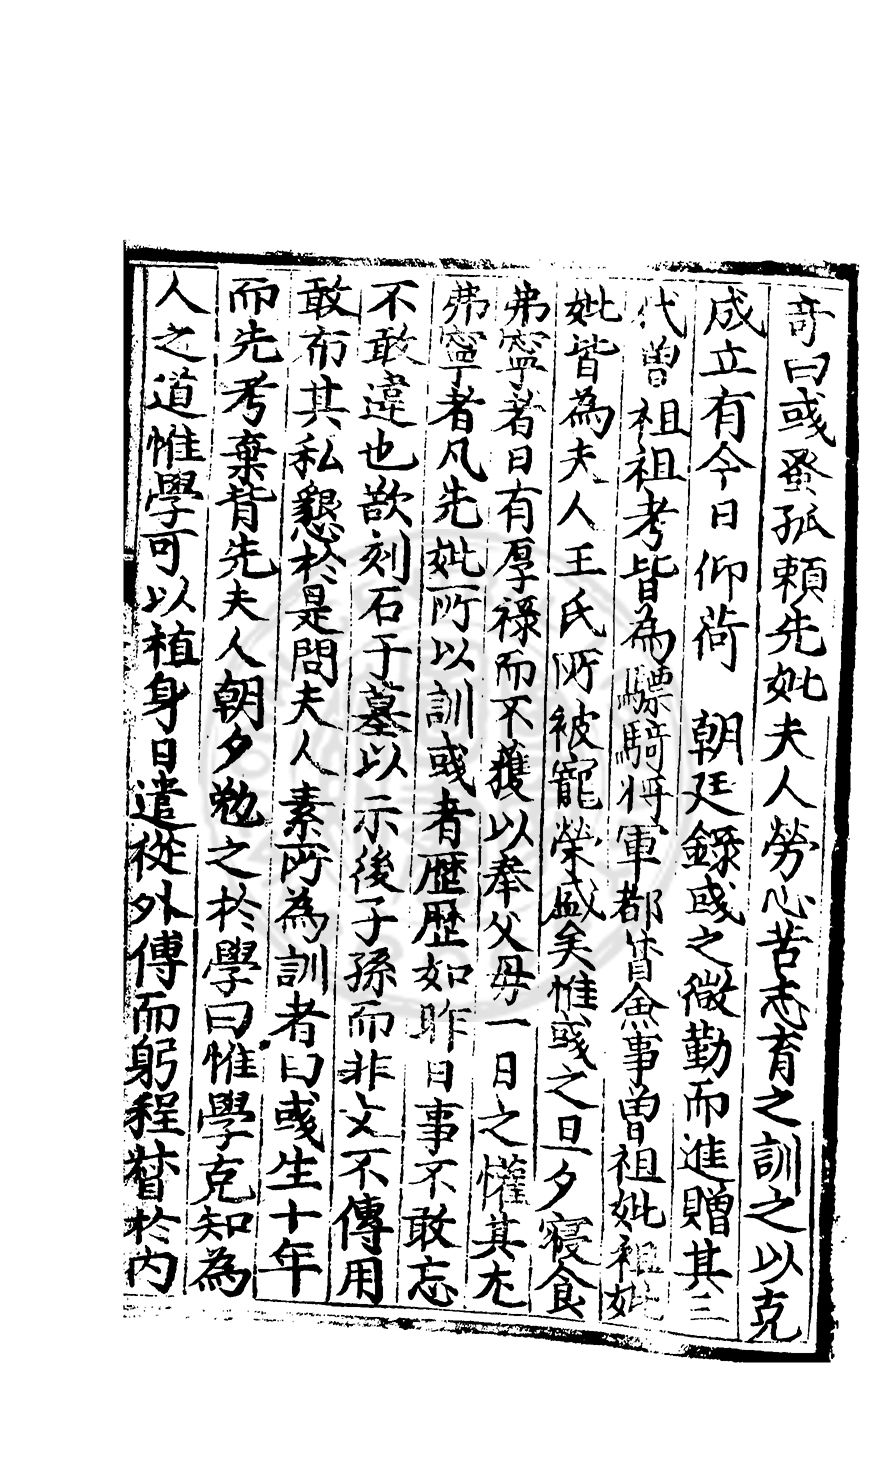 奇曰彧蚤孤頼先妣夫人勞心苦志育之訓之以克
成立有今日仰荷　朝廷錄彧之微勤而進贈其三
代曽祖祖考皆為驃騎将軍都督僉事曽祖妣祖妣
妣皆為夫人王氏所被寵榮盛矣惟彧之旦夕寢食
弗寧者日有厚祿而不獲以奉父母一日之懽其尤
弗寧者凡先妣所以訓彧者歷歷如昨日事不敢忘
不敢違也欲刻石于墓以示後子孫而非文不傳用
敢布其私懇於是問夫人素所為訓者曰彧生十年
而先考棄背先夫人朝夕勉之於學曰惟學克知為
人之道惟學可以植身日遣從外傅而躬程督於内